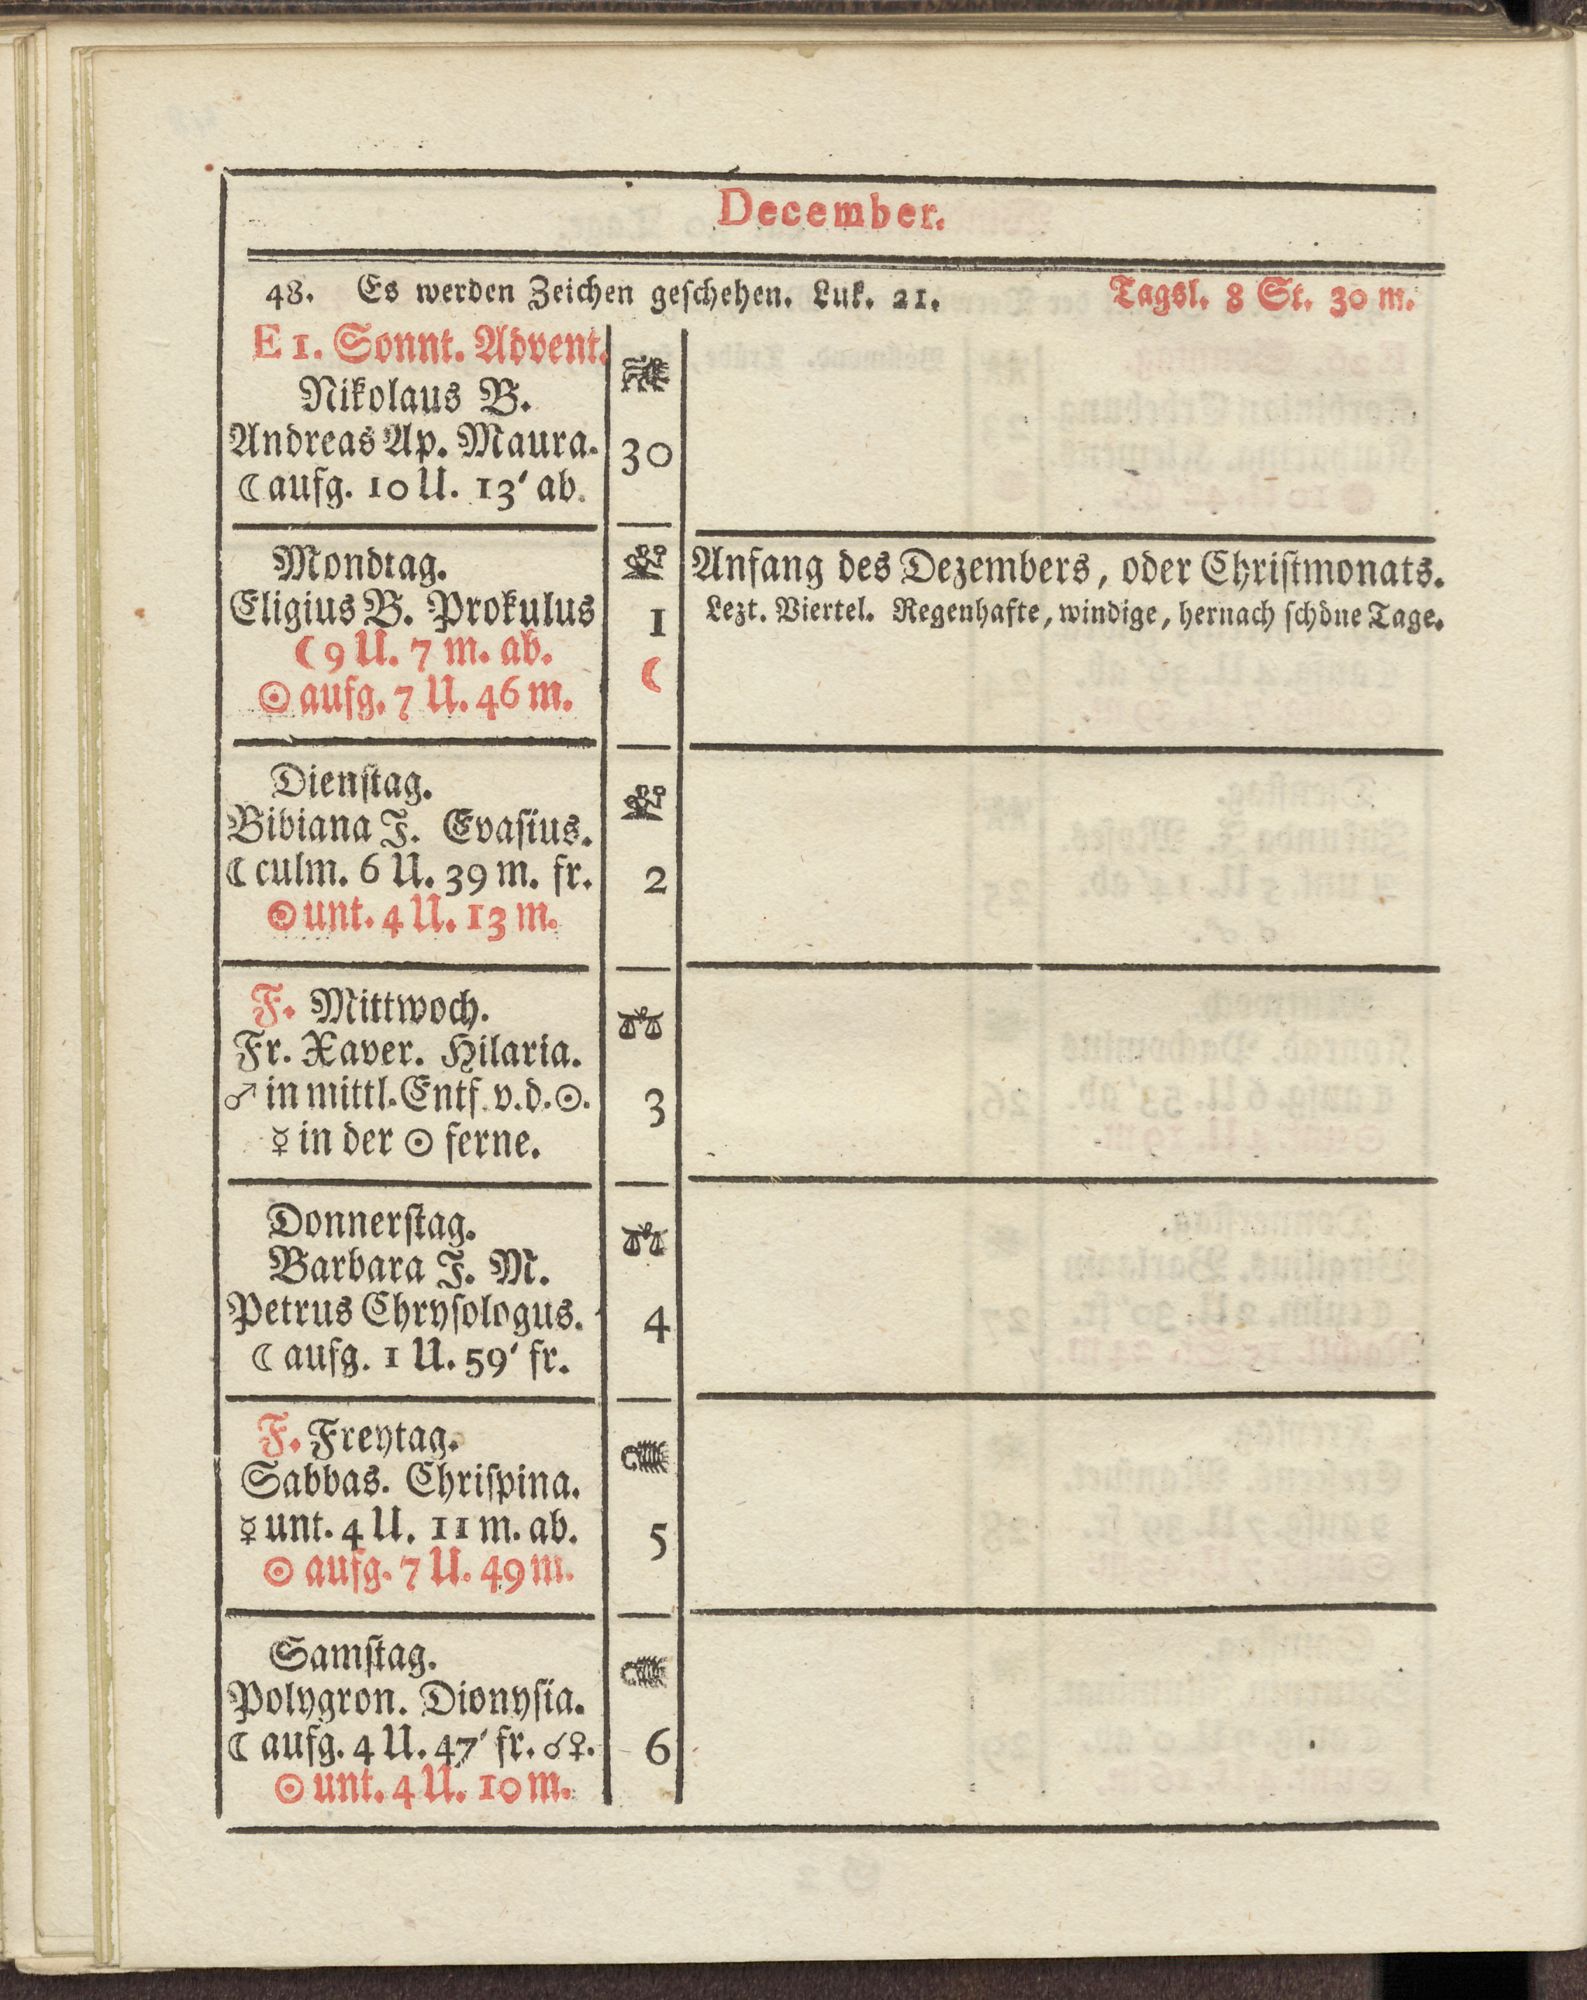 December.
48. Es werden Zeichen geschehen. Luk. 21. Tagsl. 8 St. 30 m.
E 1. Sonnt. Advent.
Nikolaus B.
Andreas Ap. Maura. 30
☾ aufg. 10 U. 13' ab.
Mondtag.
Eligius B. Prokulus 1
☾ 9 U. 7 m. ab. ☾
☉ aufg. 7 U. 46 m.
Anfang des Dezembers, oder Christmonats.
Lezt. Viertel. Regenhafte, windige, hernach schöne Tage.
Dienstag.
Bibiana J. Evasius.
☾ culm. 6 U. 39 m. fr. 2
☉ unt. 4 U. 13 m.
F. Mittwoch. ♎
Fr. Xaver. Hilaria.
♂ in mittl. Entf. v. d. ☉. 3
☿ in der ☉ ferne.
Donnerstag. ♎
Barbara J. M.
Petrus Chrysologus. 4
☾ aufg. 1 U. 59' fr.
F. Freytag.
Sabbas. Chrispina.
☿ unt. 4 U. 11 m. ab. 5
☉ aufg. 7 U. 49 m.
Samstag.
Polygron. Dionysia.
☾ aufg. 4 U. 47' fr. ☌ ♀. 6
☉ unt. 4 U. 10 m.